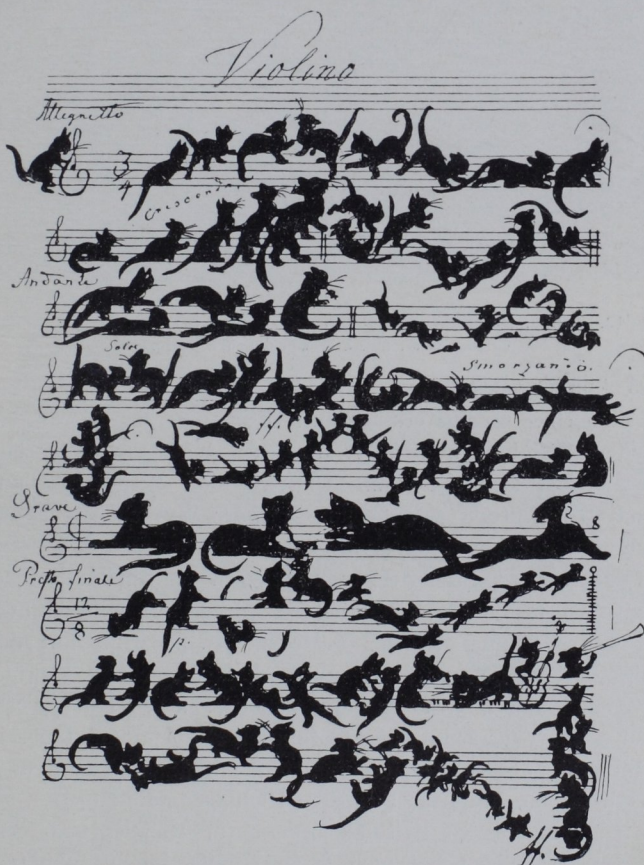 Violino
Allegretto
3
4
Crescendo
Andante
Solo
Smorzando.
ff.
Grave
2 8
Presto finale
12
8
p.
ff.